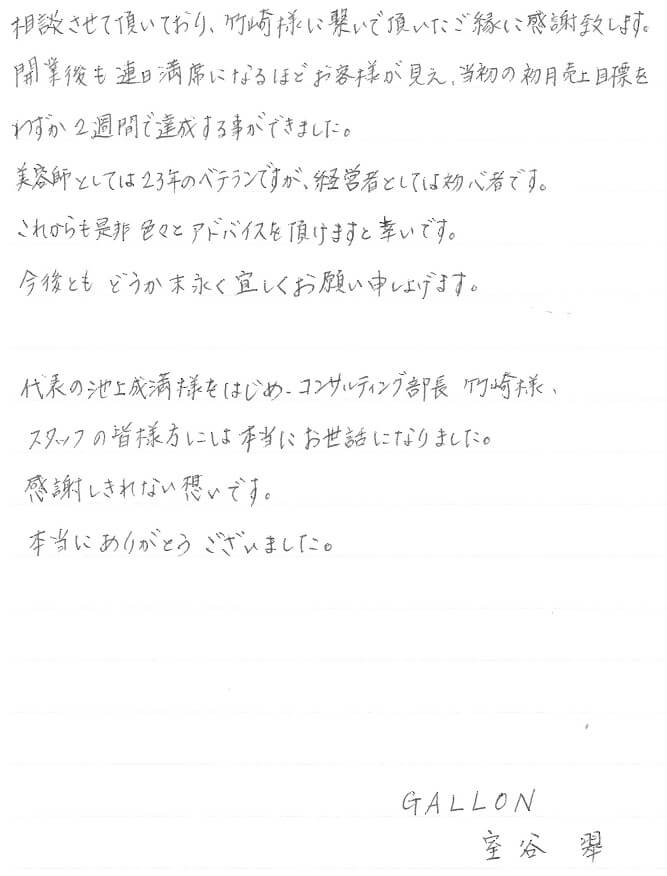 相談させて頂いており、竹崎様に繋いで頂いたご縁に感謝致します。
開業後も連日満席になるほどお客様が見え、当初の初月売上目標を
わずか2週間で達成する事ができました。
美容師としては23年のベテランですが、経営者としては初心者です。
これからも是非色々とアドバイスを頂けますと幸いです。
今後ともどうか末永く宜しくお願い申し上げます。
代表の池上成満様をはじめ、コンサルティング部長 竹崎様、
スタッフの皆様方には本当にお世話になりました。
感謝しきれない想いです。
本当にありがとうございました。
GALLON
室谷 翠